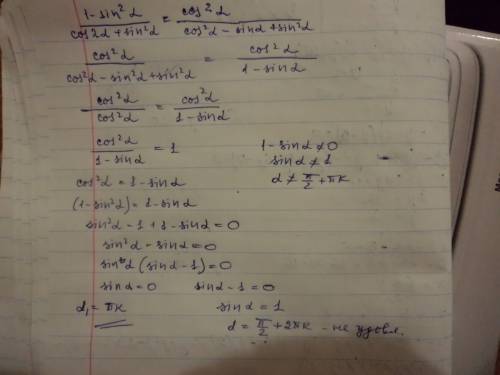 (1-sin²α)/(cos2α+sin²α) = cos²α/(cos²α-sinα+sin²α)
cos²α/(cos²α-sin²α+sin²α) = cos²α/(1-sinα)
cos²α/cos²α = cos²α/(1-sinα)
cos²α/(1-sinα) = 1 1-sinα≠0
sinα≠1
cos²α=1-sinα α≠π/2+πk
(1-sin²α)=1-sinα
sin²α-1+1-sinα=0
sin²α-sinα=0
sinα(sinα-1)=0
sinα=0 sinα-1=0
α₁=πk sinα=1
α=π/2+2πk - не удовл.